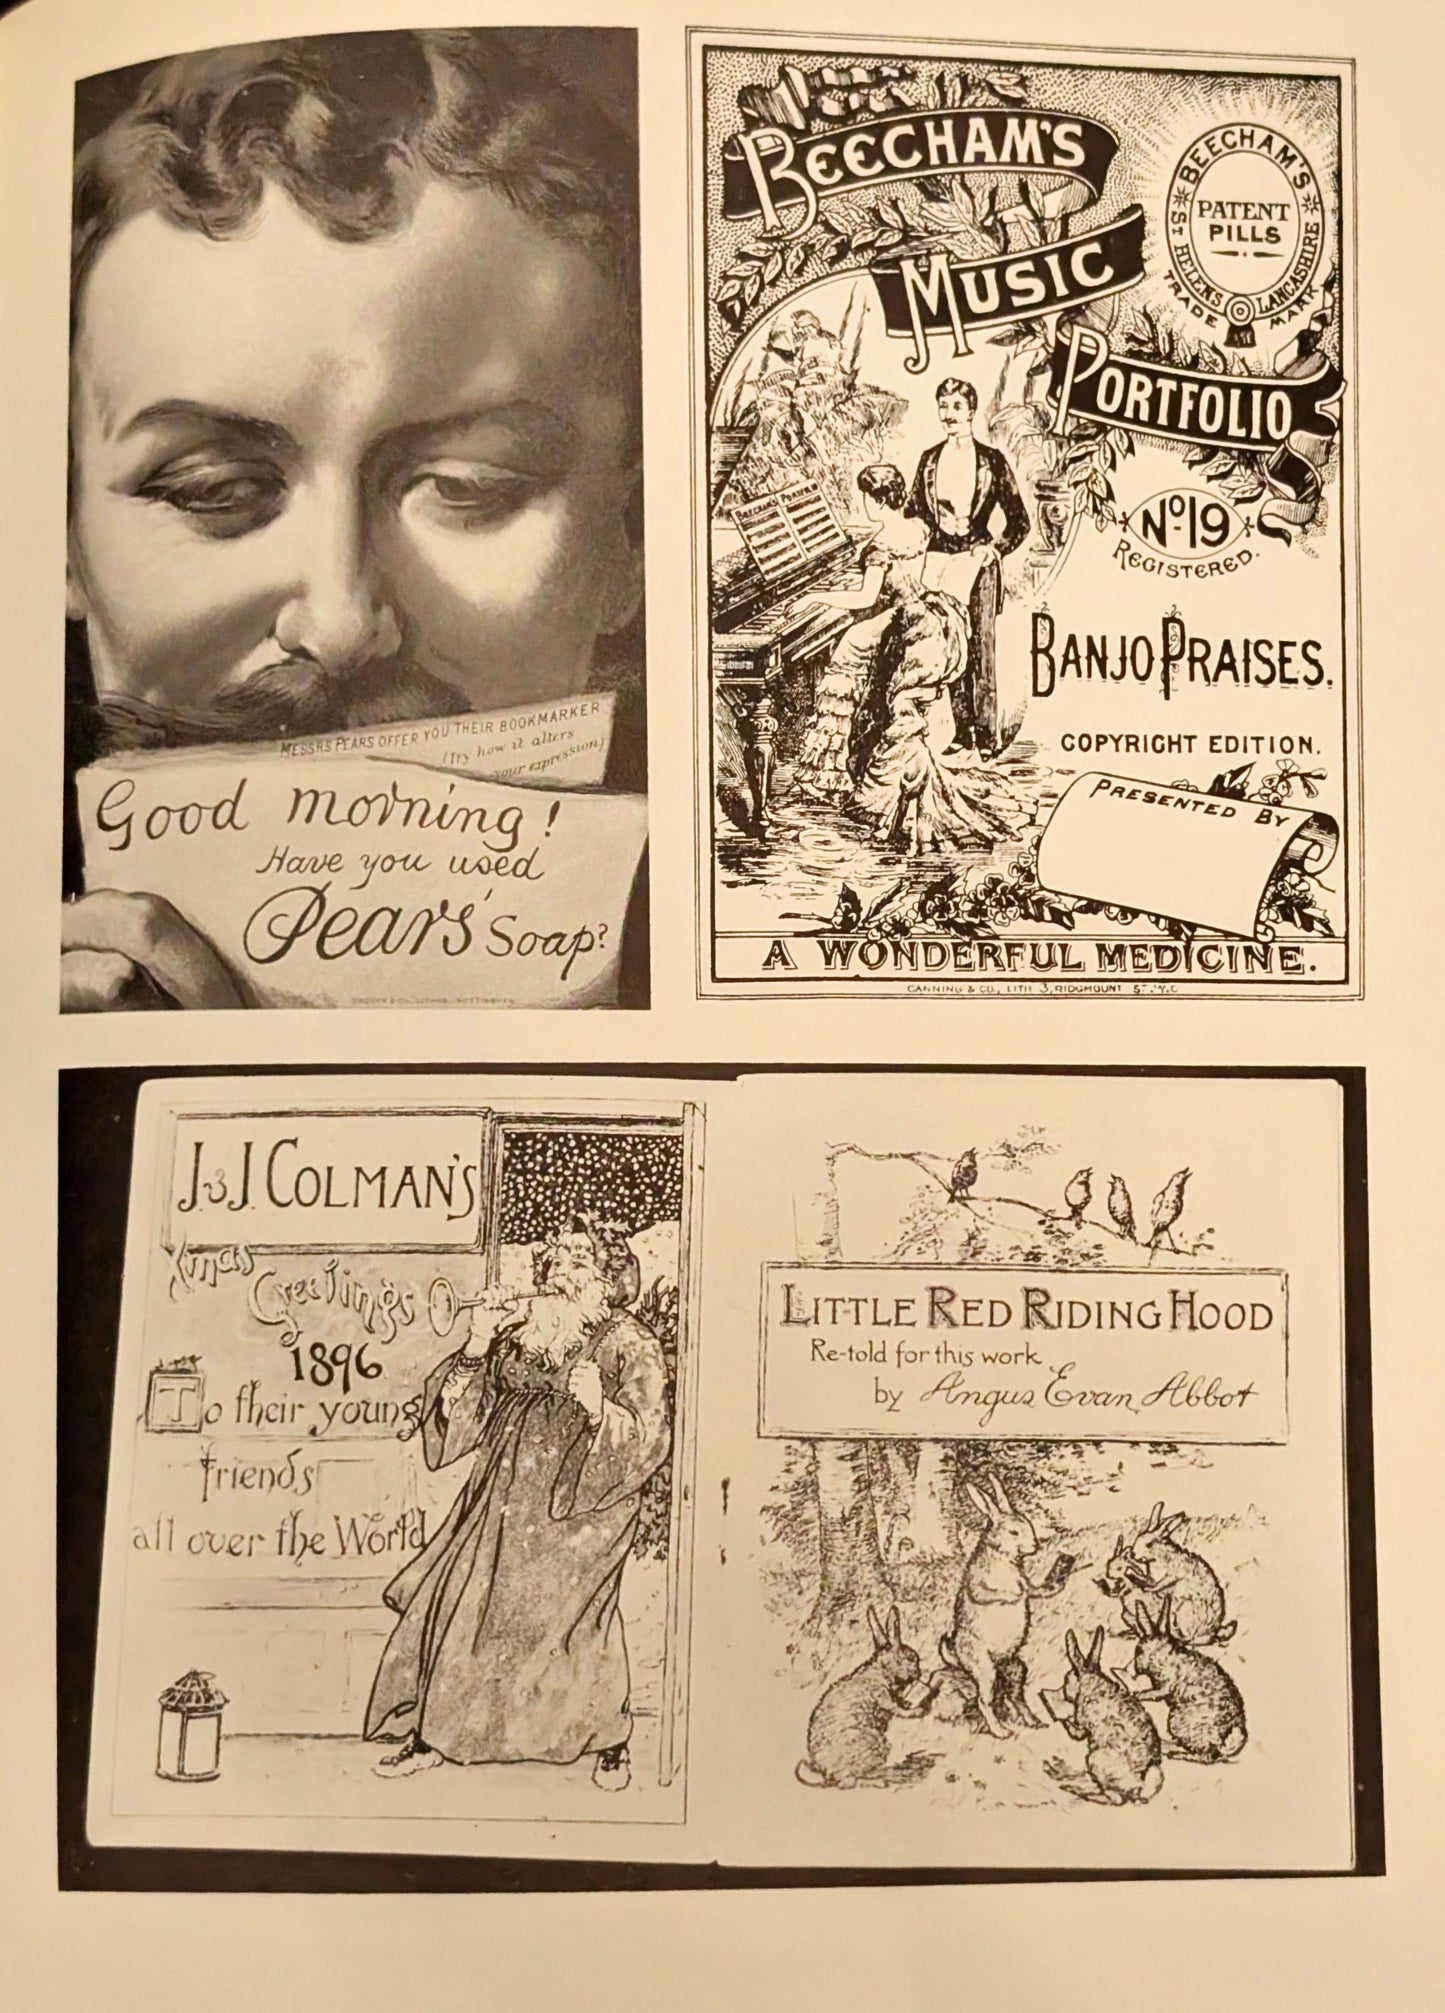 MESSRS PEARS OFFER YOU THEIR BOOKMARKER
(Try how it alters
your expression)
Good morning!
Have you used
Pears' Soap?
BEECHAM'S
MUSIC
PORTFOLIO
BEECHAM'S
PATENT
PILLS
ST HELENS LANCASHIRE
TRADE MARK
BEECHAM'S
No 19
REGISTERED.
BANJO PRAISES.
COPYRIGHT EDITION.
PRESENTED BY
A WONDERFUL MEDICINE.
CANNING & CO., LITH 3, RIDGMOUNT ST. W.C
J. & J. COLMAN'S
Xmas
Greetings
1896
To their young
friends
all over the World
LITTLE RED RIDING HOOD
Re-told for this work
by Angus Evan Abbot